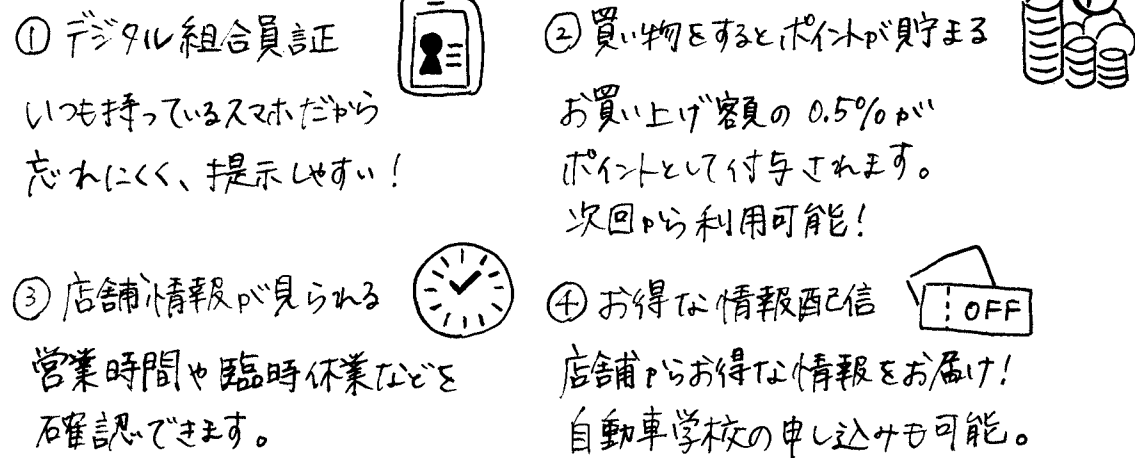 ① デジタル組合員証
いつも持っているスマホだから
忘れにくく、提示しやすい！
② 買い物をするとポイントが貯まる
お買い上げ額の0.5%が
ポイントとして付与されます。
次回から利用可能！
③ 店舗情報が見られる
営業時間や臨時休業などを
確認できます。
④ お得な情報配信
OFF
店舗からお得な情報をお届け！
自動車学校の申し込みも可能。